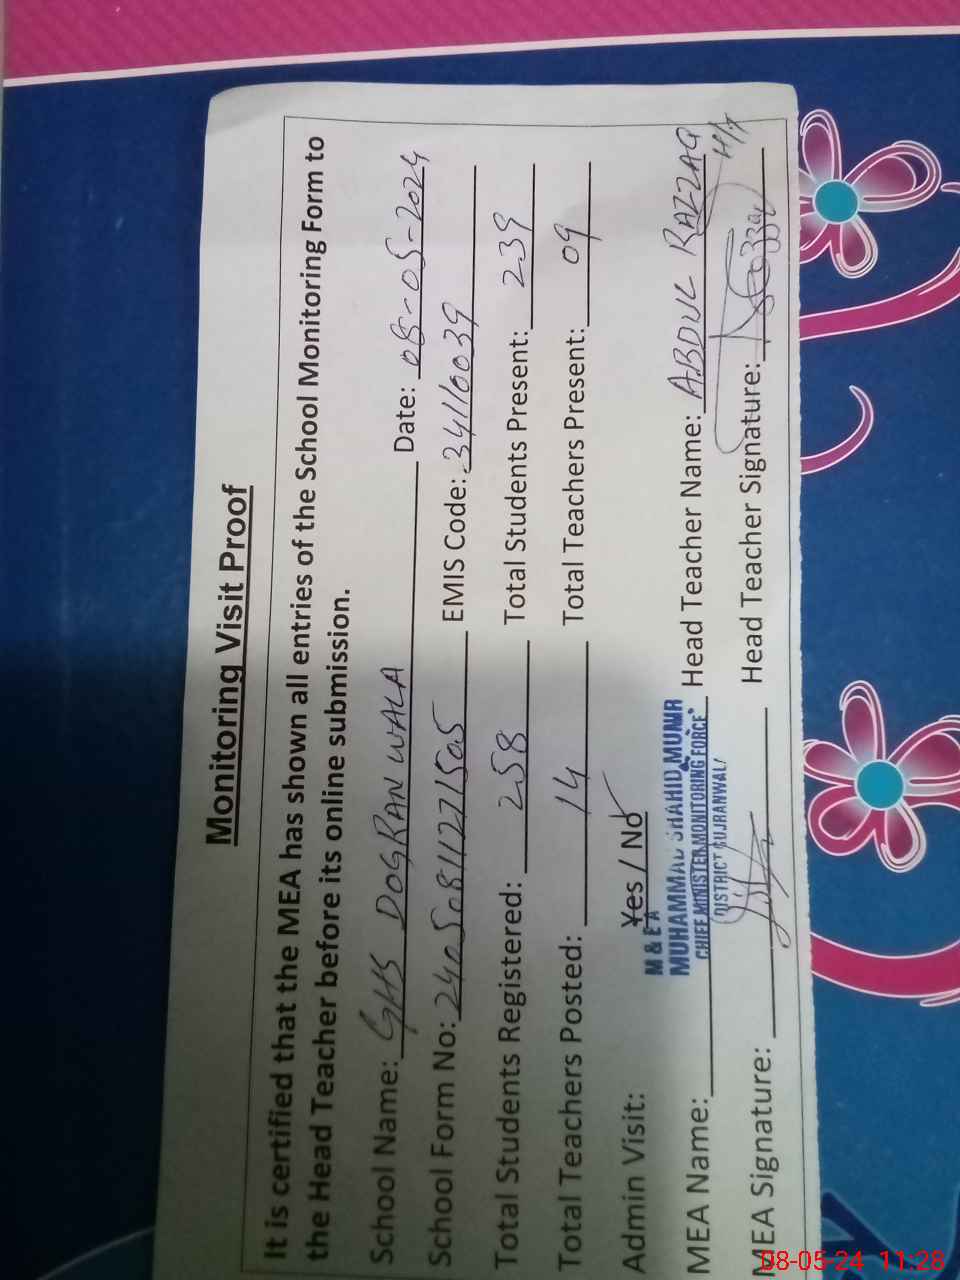 Monitoring Visit Proof
It is certified that the MEA has shown all entries of the School Monitoring Form to
the Head Teacher before its online submission.
School Name: GHS DOGRAN WALA Date: 08-05-2024
School Form No: 24050811271505 EMIS Code: 34110039
Total Students Registered: 258 Total Students Present: 239
Total Teachers Posted: 14 Total Teachers Present: 09
Admin Visit: Yes / No
M & E A
MUHAMMAD SHAHID MUNIR
CHIEF MINISTER MONITORING FORCE
DISTRICT GUJRANWALA
MEA Name: Head Teacher Name: ABDUL RAZZAQ
MEA Signature: Head Teacher Signature:
08-05-24 11:28